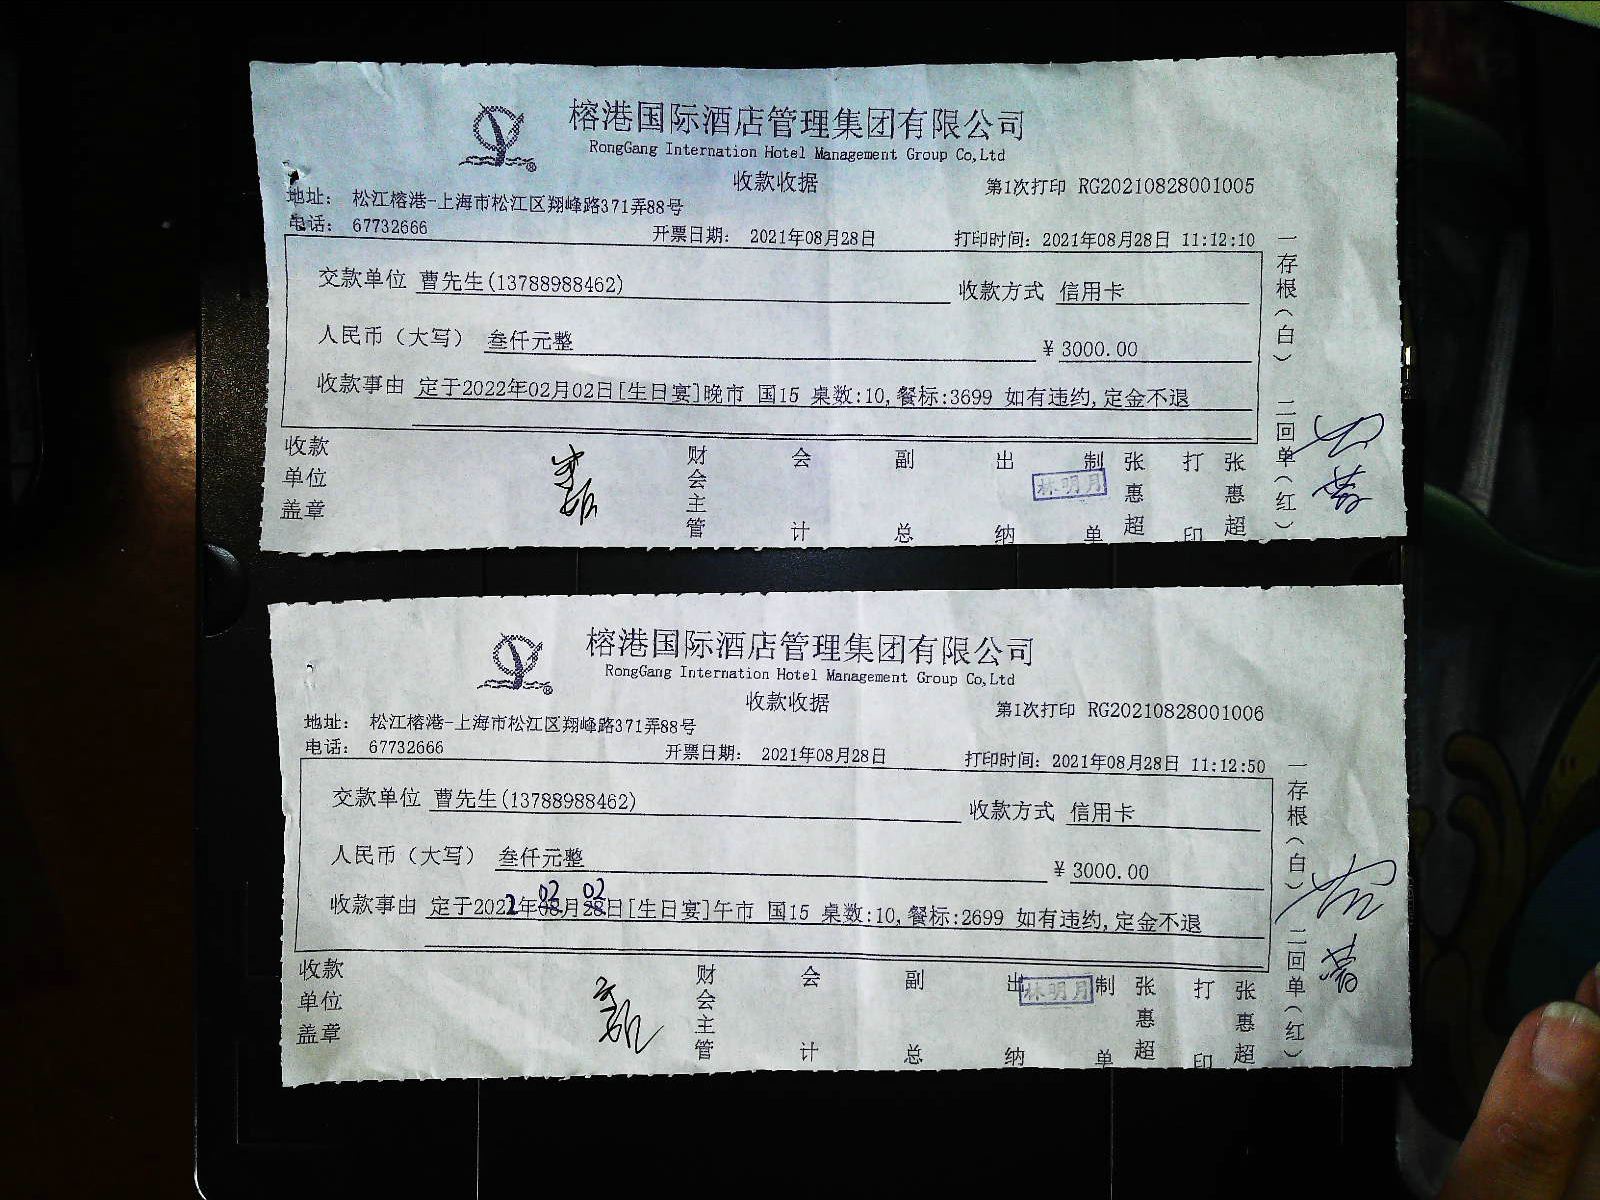 榕港国际酒店管理集团有限公司
RongGang Internation Hotel Management Group Co,Ltd
收款收据
第1次打印 RG20210828001005
地址： 松江榕港-上海市松江区翔峰路371弄88号
电话： 67732666
开票日期： 2021年08月28日
打印时间：2021年08月28日 11:12:10
交款单位 曹先生(13788988462)
收款方式 信用卡
人民币（大写） 叁仟元整
¥ 3000.00
收款事由 定于2022年02月02日[生日宴]晚市 国15 桌数:10,餐标:3699 如有违约,定金不退
一存根（白） 二回单（红）
收款单位盖章
财会主管
会计
副总
出纳
林明月
制单
张惠超
打印
张惠超
榕港国际酒店管理集团有限公司
RongGang Internation Hotel Management Group Co,Ltd
收款收据
第1次打印 RG20210828001006
地址： 松江榕港-上海市松江区翔峰路371弄88号
电话： 67732666
开票日期： 2021年08月28日
打印时间：2021年08月28日 11:12:50
交款单位 曹先生(13788988462)
收款方式 信用卡
人民币（大写） 叁仟元整
¥ 3000.00
02 02
收款事由 定于2022年08月28日[生日宴]午市 国15 桌数:10,餐标:2699 如有违约,定金不退
一存根（白） 二回单（红）
收款单位盖章
财会主管
会计
副总
出纳
林明月
制单
张惠超
打印
张惠超